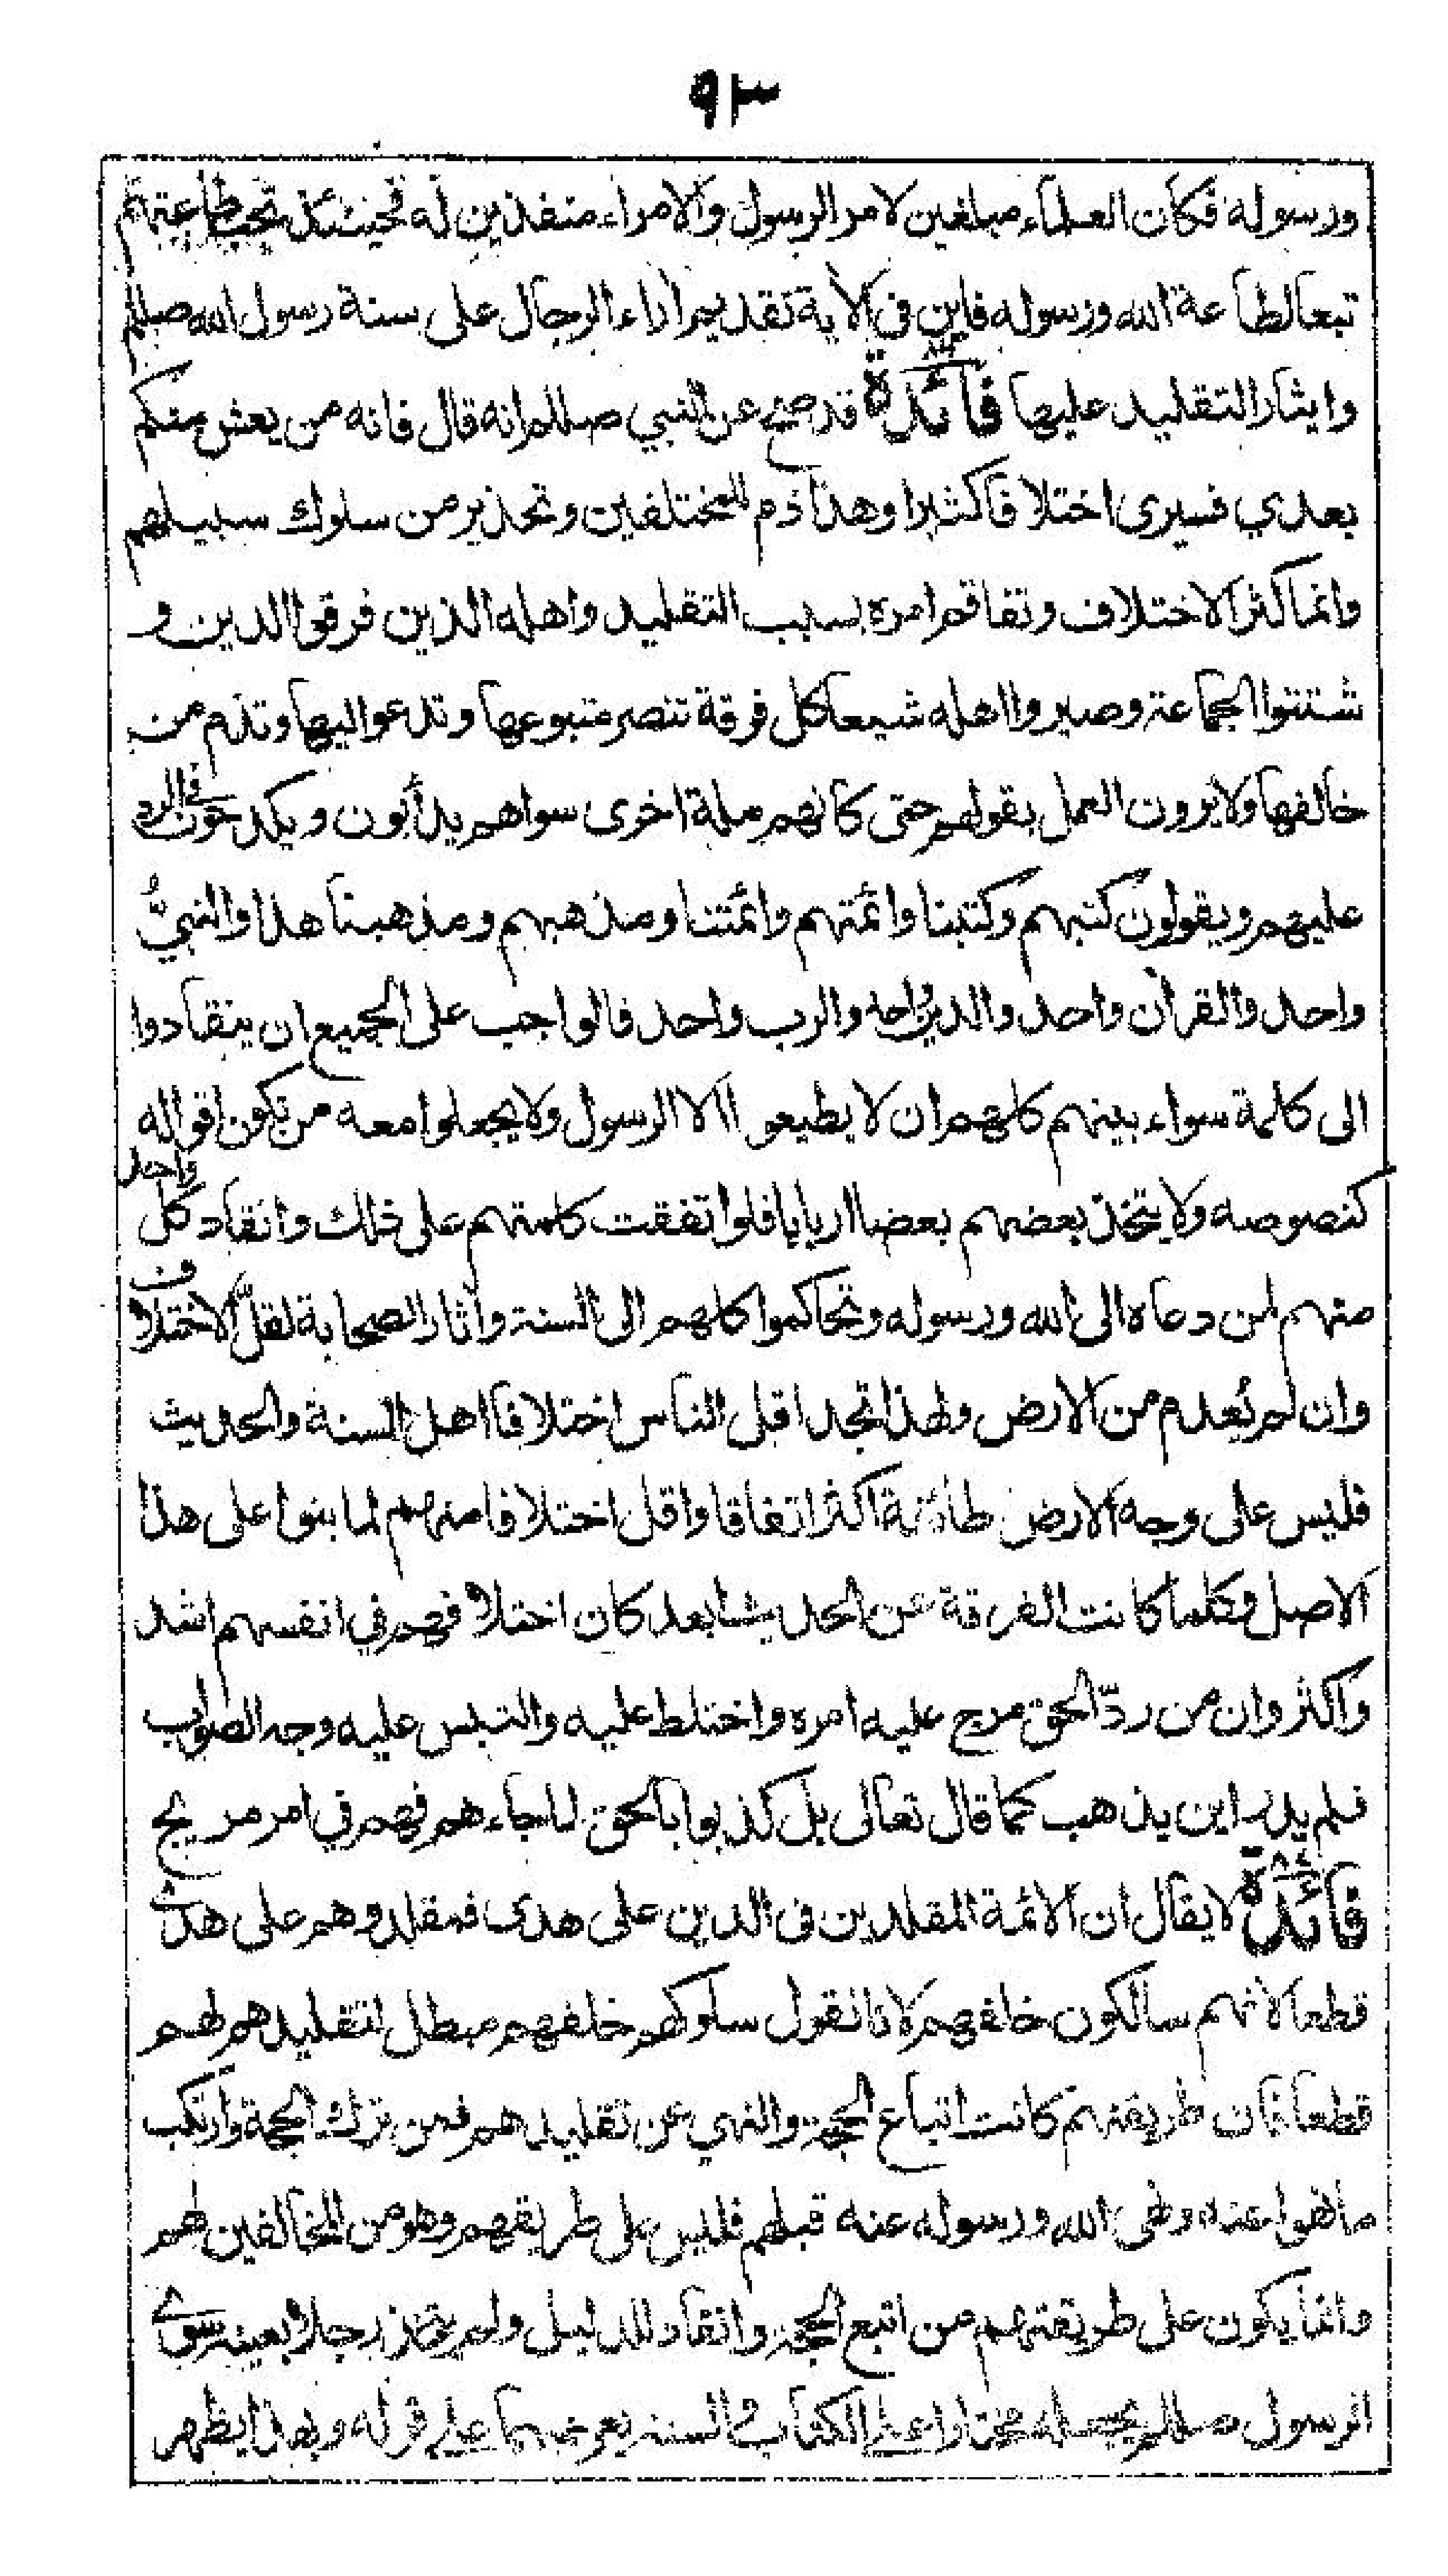 ٩٣
ورسوله فكان العلماء مبلغين لامر الرسول والامراء منفذين له فحينئذ تجب طاعتهم
تبعا لطاعة الله ورسوله فاين فى الآية تقديم اراء الرجال على سنة رسول الله صللم
وايثار التقليد عليها فائدة قد صح عن النبي صللم انه قال فانه من يعش منكم
بعدي فسيرى اختلافا كثيرا وهذا ذم للمختلفين وتحذير من سلوك سبيلهم
وانما كثر الاختلاف وتفاقم امره بسبب التقليد واهله الذين فرقوا الدين و
شتتوا الجماعة وصيروا اهله شيعا كل فرقة تنصر متبوعها وتدعوا اليها وتذم من
خالفها ولا يرون العمل بقولهم حتى كانهم ملة اخرى سواهم يدأبون ويكدحون فى الرد
عليهم ويقولون كتبهم وكتبنا وائمتهم وائمتنا ومذهبهم ومذهبنا هذا والنبيُّ
واحد والقرآن واحد والدين واحد والرب واحد فالواجب على الجميع ان ينقادوا
الى كلمة سواء بينهم كلهم ان لا يطيعوا الا الرسول ولا يجعلوا معه من تكون اقواله
كنصوصه ولا يتخذ بعضهم بعضا اربابا فلو اتفقت كلمتهم على ذلك وانقاد كل واحد
منهم لمن دعاه الى الله ورسوله وتحاكموا كلهم الى السنة وآثار الصحابة لقلّ الاختلاف
وان لم يُعدم من الارض ولهذا تجد اقل الناس اختلافا اهل السنة والحديث
فليس على وجه الارض طائفة اكثر اتفاقا واقل اختلافا منهم لما بنوا على هذا
الاصل وكلما كانت الفرقة عن الحديث ابعد كان اختلافهم في انفسهم اشد
واكثر وان من ردّ الحق مرج عليه امره واختلط عليه والتبس عليه وجه الصواب
فلم يدر اين يذهب كما قال تعالى بل كذبوا بالحق لما جاءهم فهم في امر مريج
فائدة لا يقال ان الائمة المقلدين فى الدين على هدى فمقلدوهم على هدى
قطعا لانهم سالكون خلفهم لانا نقول سلوكهم خلفهم مبطل لتقليدهم لهم
قطعا فان طريقتهم كانت اتباع الحجة والنهي عن تقليدهم فمن ترك الحجة وارتكب
ما نهوا عنه ونهى الله ورسوله عنه قبلهم فليس على طريقهم وهو من المخالفين لهم
وانما يكون على طريقتهم من اتبع الحجة وانقاد للدليل ولم يتخذ رجلا بعينه سوى
الرسول صللم يجعله مختارا على الكتاب والسنة يعرضهما على قوله وبهذا يظهر